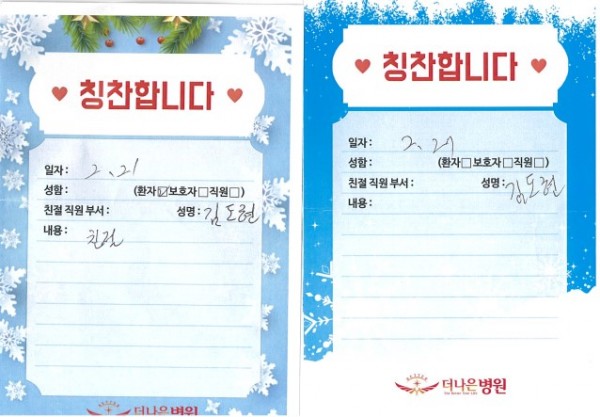 칭찬합니다
일자 : 2. 21
성함 : (환자☑보호자□직원□)
친절 직원 부서 : 성명 : 김도현
내용 : 친절
더나은병원
칭찬합니다
일자 : 2. 21
성함 : (환자□보호자□직원□)
친절 직원 부서 : 성명 : 김도현
내용 :
더나은병원